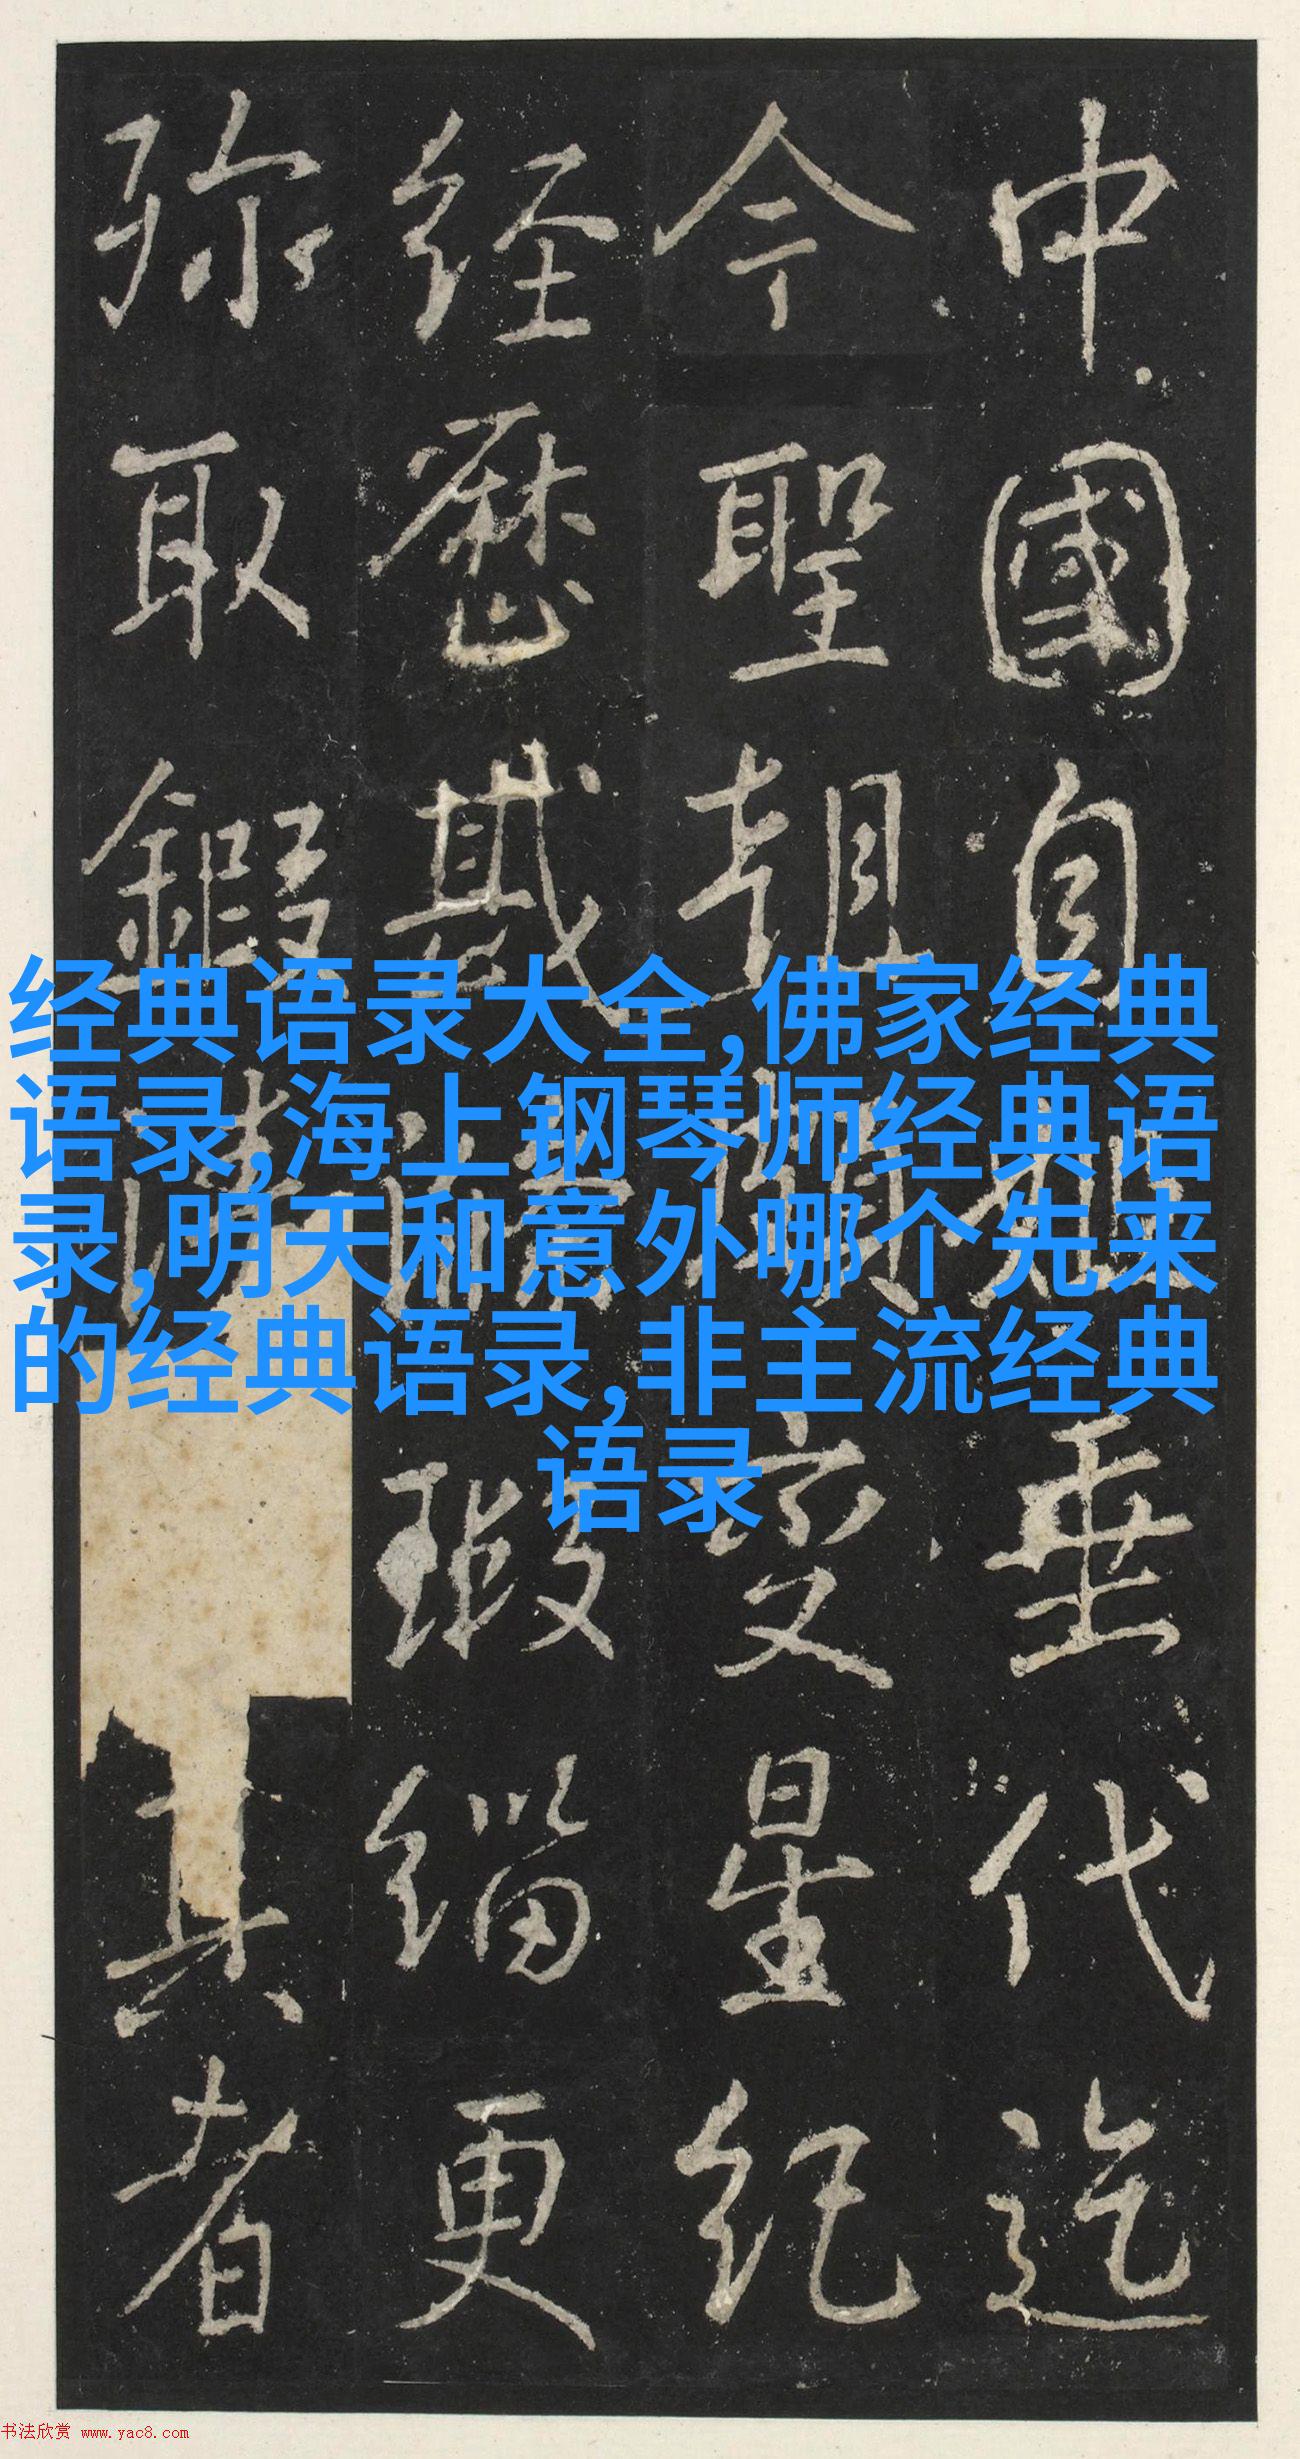 中國自垂代迄
今聖朝變星紀
経歷瑕緇更
弥取真者
经典语录大全,佛家经典
语录,海上钢琴师经典语
录,明天和意外哪个先来
的经典语录,非主流经典
语录
书法欣赏 www.yac8.com